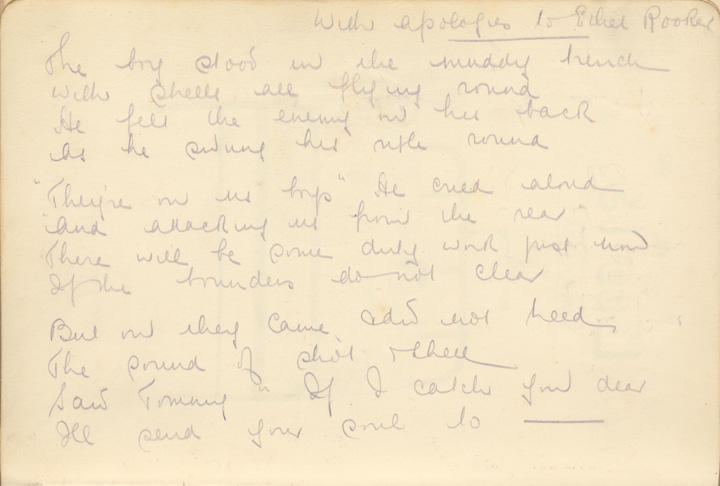 With apologies to Ethel Rooker
The boy stood in the muddy trench
With shells all flying round
He felt the enemy on his back
As he swung his rifle round
"They're on us boys" He cried aloud
"and attacking us from the rear"
There will be some dirty work just now
If the bounders do not clear
But on they came did not heed
The sound of shot & shell
Said Tommy "If I catch you dear
Ill send your soul to ———